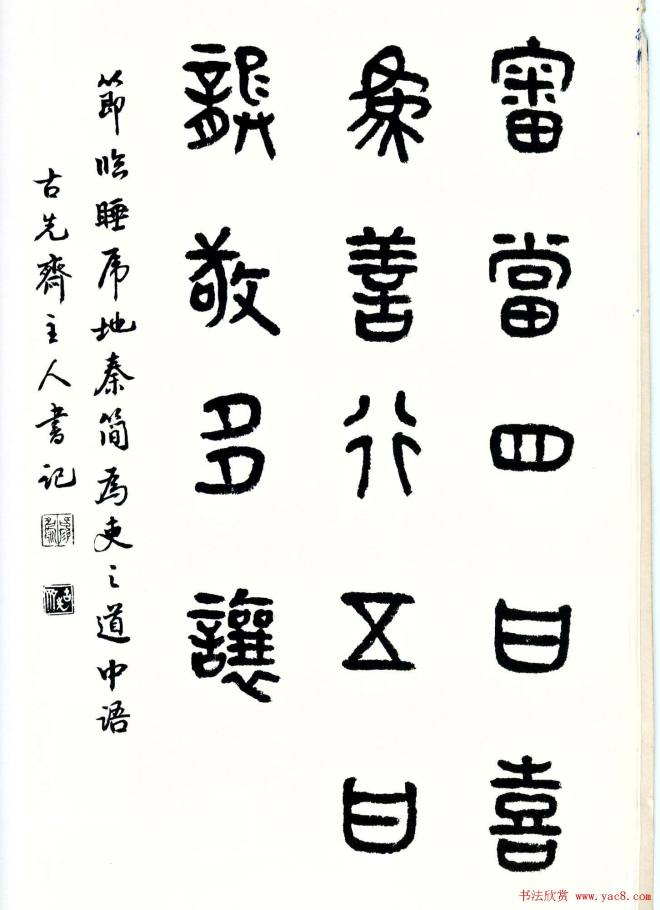 審當四曰喜
爲善行五曰
龏敬多讓
節臨睡虎地秦简爲吏之道中语
古先齋主人書記
书法欣赏 www.yac8.com